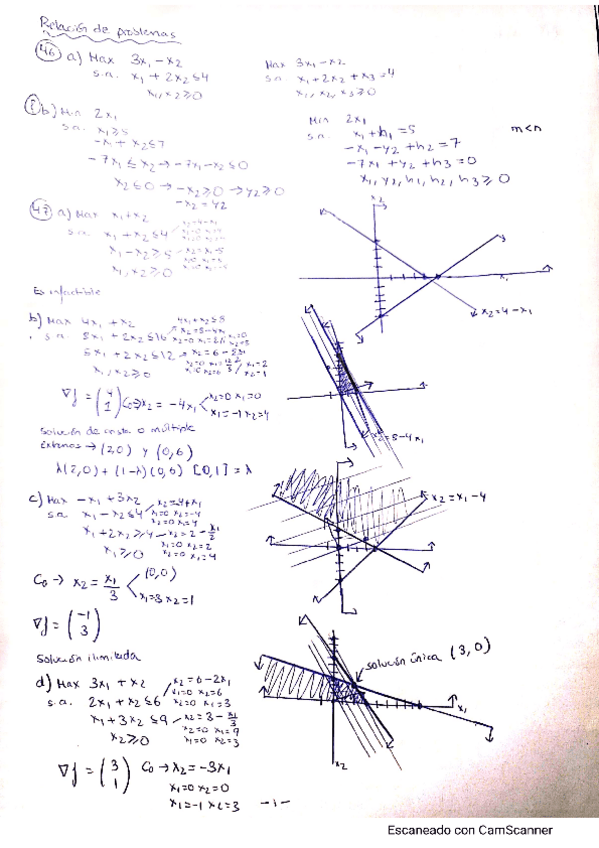 Relación de problemas
46 a) Max 3x₁ - x₂
s.a. x₁ + 2x₂ ≤ 4
x₁, x₂ ≥ 0
Max 3x₁ - x₂
s.a. x₁ + 2x₂ + x₃ = 4
x₁, x₂, x₃ ≥ 0
b) Min 2x₁
s.a. x₁ ≥ 5
-x₁ + x₂ ≤ 7
-7x₁ ≤ x₂ → -7x₁ - x₂ ≤ 0
x₂ ≤ 0 → -x₂ ≥ 0 → y₂ ≥ 0
-x₂ = y₂
Min 2x₁
s.a. x₁ + h₁ = 5
m<n
-x₁ - y₂ + h₂ = 7
-7x₁ + y₂ + h₃ = 0
x₁, y₂, h₁, h₂, h₃ ≥ 0
47 a) Max x₁ + x₂
s.a. x₁ + x₂ ≤ 4
x₁ - x₂ ≥ 5
x₁, x₂ ≥ 0
x₂
x₁
x₂ = 4 - x₁
Es infactible
b) Max 4x₁ + x₂
s.a. 8x₁ + 2x₂ ≤ 16
6x₁ + 2x₂ ≤ 12
x₁, x₂ ≥ 0
∇f = (4 1) C₀ → x₂ = -4x₁
x₂=0 x₁=0
x₁=-1 x₂=4
x₂ = 5 - 4x₁
Solución de arista o múltiple
Extremos → (2,0) y (0,6)
λ(2,0) + (1-λ)(0,6) [0,1] = λ
c) Max -x₁ + 3x₂
s.a. x₁ - x₂ ≤ 4
x₁ + 2x₂ ≥ 4
x₂ = 2 - x₁/2
x₁=0 x₂=2
x₂=0 x₁=4
x₁ ≥ 0
x₂ = x₁ - 4
C₀ → x₂ = x₁/3
(0,0)
x₁=3 x₂=1
∇f = (-1 3)
Solución ilimitada
d) Max 3x₁ + x₂
s.a. 2x₁ + x₂ ≤ 6
x₂ = 6 - 2x₁
x₁=0 x₂=6
x₂=0 x₁=3
x₁ + 3x₂ ≤ 9
x₂ = 3 - x₁/3
x₂=0 x₁=9
x₁=0 x₂=3
x₂ ≥ 0
solución única (3,0)
x₁
x₂
∇f = (3 1) C₀ → x₂ = -3x₁
x₁=0 x₂=0
x₁=-1 x₂=3
-1-
Escaneado con CamScanner